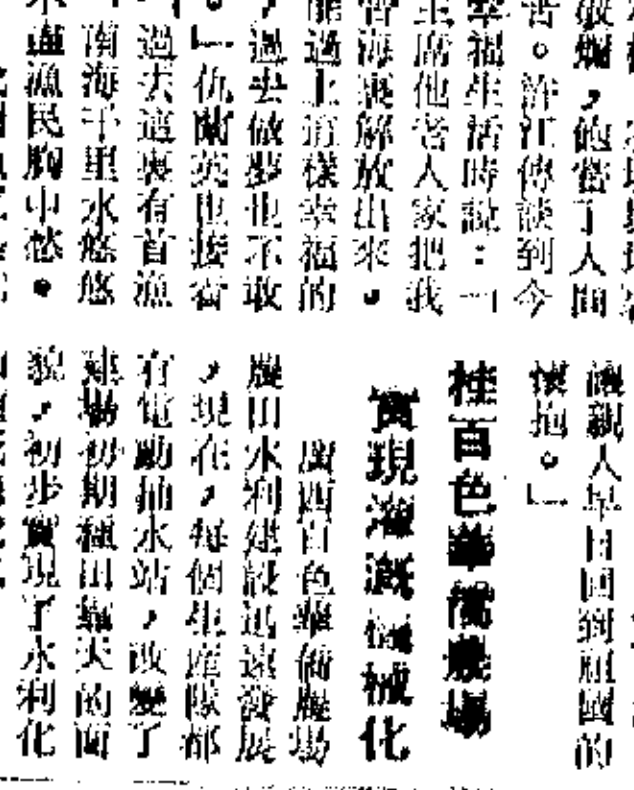 敢爛，飽嘗了人間
苦。許江傳談到今
幸福生活時說：「
主席他老人家把我
海裏解放出來。
能過上這樣幸福的
，過去做夢也不敢
。」仇蘭英也接着
過去這裏有首漁
「南海千里水悠悠
漁民胸中愁。
讓親人早日回到祖國的
懷抱。」
桂百色華僑農場
實現灌溉機械化
廣西百色華僑農場
農田水利建設迅速發展
，現在，每個生産隊都
有電動抽水站，改變了
建場初期種田靠天的面
貌，初步實現了水利化